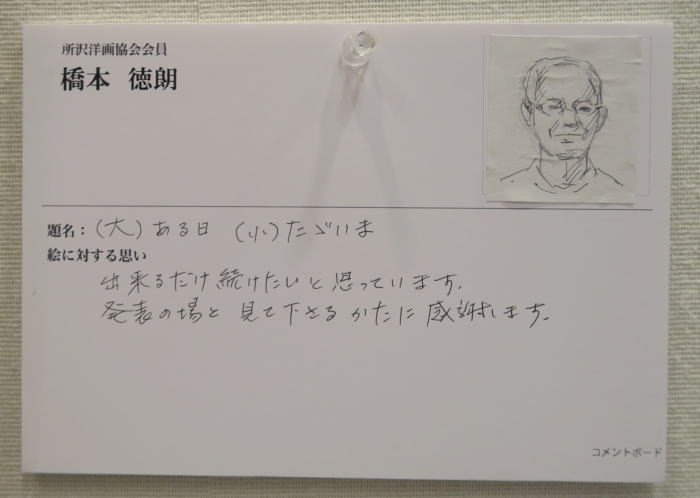 所沢洋画協会会員
橋本 徳朗
題名：(大) ある日 (小) たゞいま
絵に対する思い
出来るだけ続けたいと思っています.
発表の場と見て下さるかたに感謝します.
コメントボード